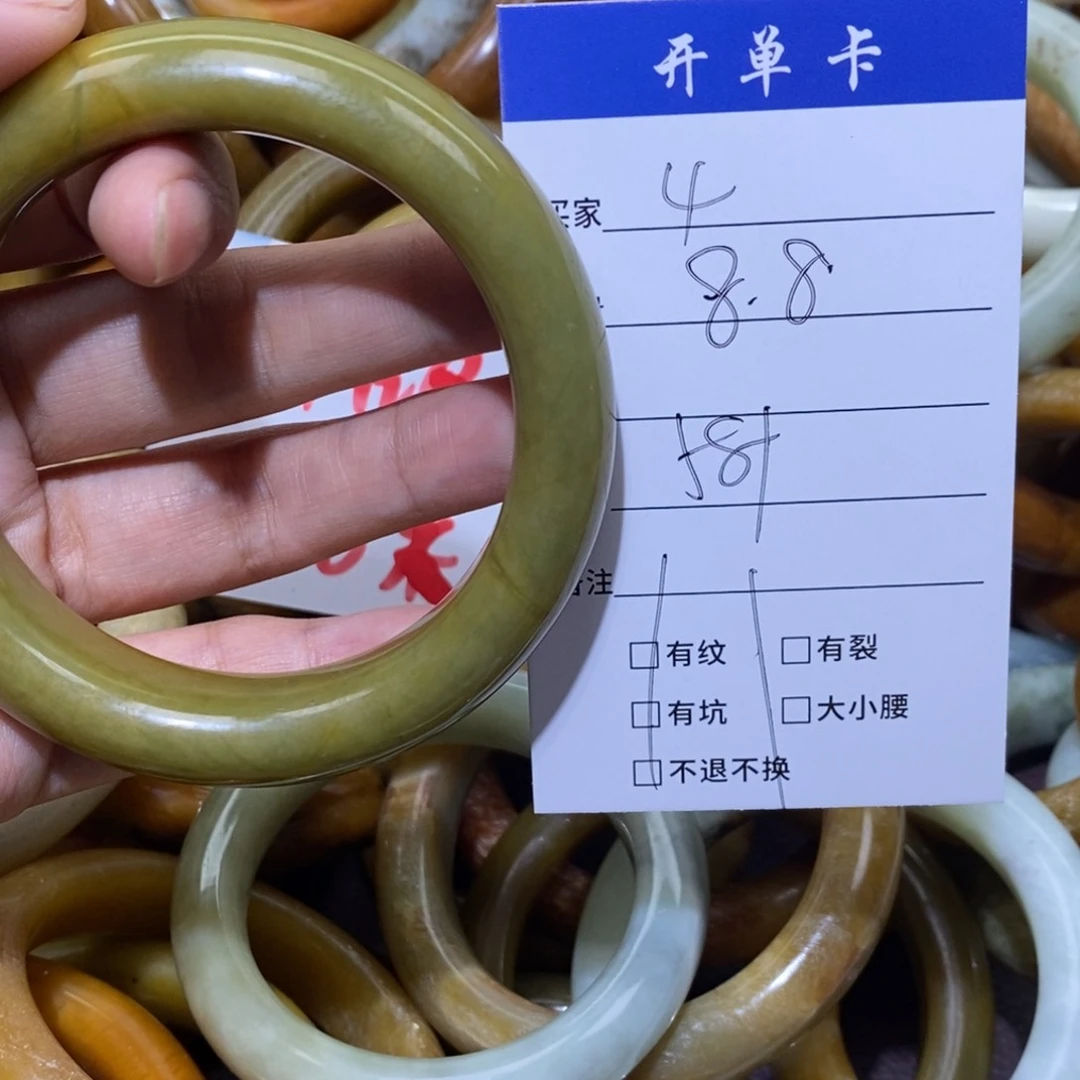 开单卡
买家 4
8.8
58
备注
□有纹 □有裂
□有坑 □大小腰
□不退不换